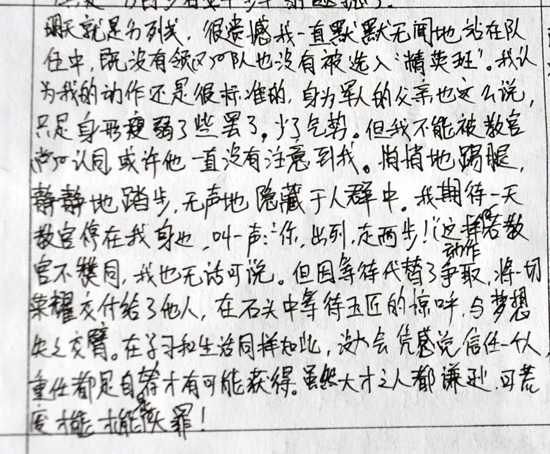 明天就是分列式，很遗憾我一直默默无闻地站在队
伍中，既没有领队也没有被选入"精英班"。我认
为我的动作还是很标准的，身为军人的父亲也这么说，
只是身形瘦弱了些罢了，少了气势。但我不能被教官
所认同，或许他一直没有注意到我。悄悄地踢腿，
静静地踏步，无声地隐藏于人群中。我期待一天
教官停在我身边，叫一声："你，出列，走两步！"这样若教
官不赞同，我也无话可说。但因等待代替了动作争取，将一切
荣耀交付给了他人，在石头中等待玉匠的惊呼，与梦想
失之交臂。在学习和生活同样如此，没人会凭感觉信任一个人
重任都是自荐才有可能获得。虽然大才之人都谦逊，可荒
废才能才能是罪！